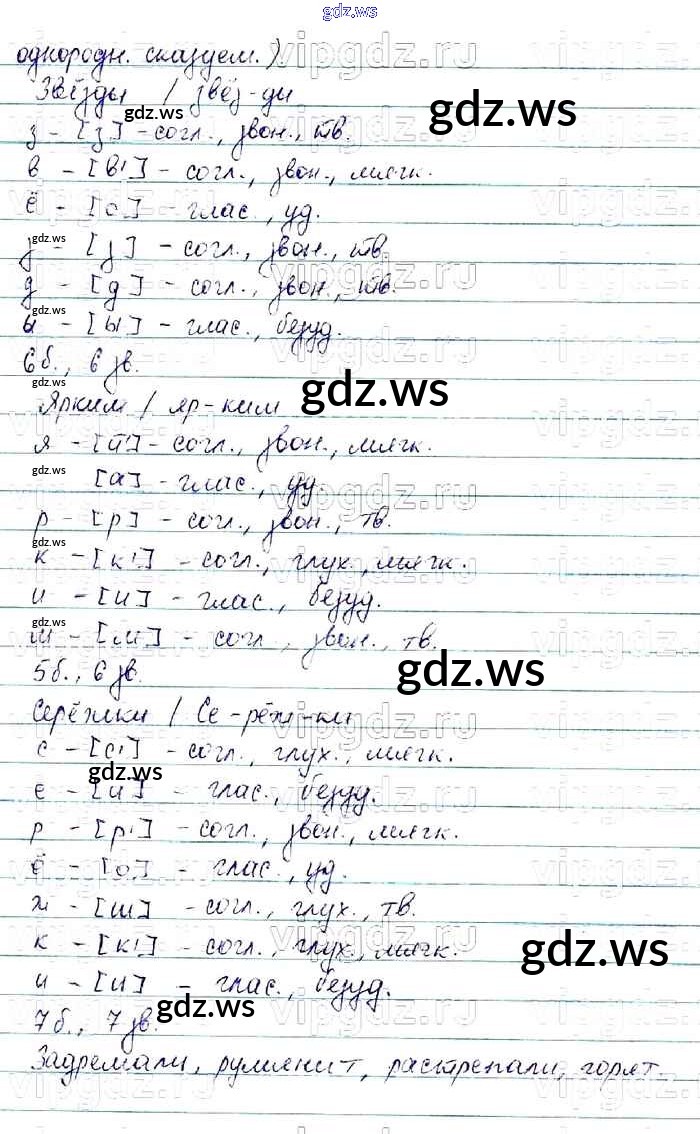 gdz.ws
однородн. сказуем.)
Звёзды / звёз-ды
gdz.ws
gdz.ws
з - [з] - согл., звон., тв.
в - [в'] - согл., звон., мягк.
gdz.ws
ё - [о] - глас., уд.
gdz.ws
з - [з] - согл., звон., тв.
д - [д] - согл., звон., тв.
gdz.ws
ы - [ы] - глас., безуд.
6 б., 6 зв.
gdz.ws
gdz.ws
Ярким / яр-ким
я - [й'] - согл., звон., мягк.
gdz.ws
[а] - глас., уд.
р - [р] - согл., звон., тв.
gdz.ws
к - [к'] - согл., глух., мягк.
и - [и] - глас., безуд.
gdz.ws
м - [м] - согл., звон., тв.
5 б., 6 зв.
gdz.ws
Серёжки / Се-рёж-ки
с - [с'] - согл., глух., мягк.
gdz.ws
е - [и] - глас., безуд.
р - [р'] - согл., звон., мягк.
ё - [о] - глас., уд.
ж - [ш] - согл., глух., тв.
к - [к'] - согл., глух., мягк.
gdz.ws
и - [и] - глас., безуд.
gdz.ws
7 б., 7 зв.
Задремали, румянит, растрепали, горят.
vipgdz.ru